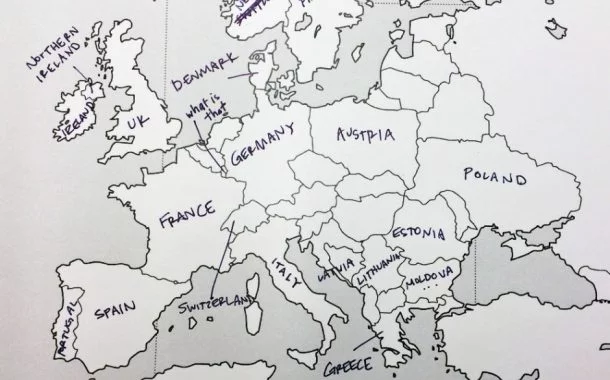 NORTHERN
IRELAND
IRELAND
UK
DENMARK
what is
that
GERMANY
AUSTRIA
POLAND
FRANCE
ESTONIA
ITALY
LATVIA
LITHUANIA
MOLDOVA
SWITZERLAND
SPAIN
PORTUGAL
GREECE